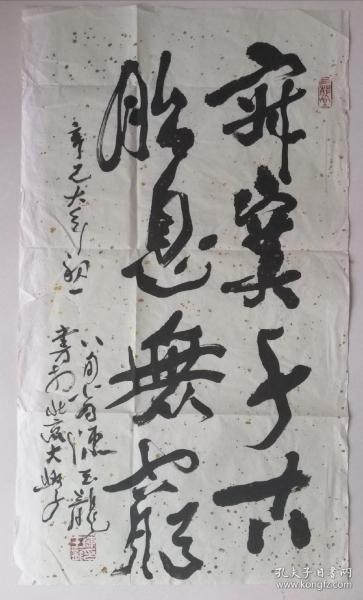 寂寞千古
胎息無窮
辛巳大雪初一
八旬翁陳玉龍
書於北京大學
孔夫子旧书网
www.kongfz.com